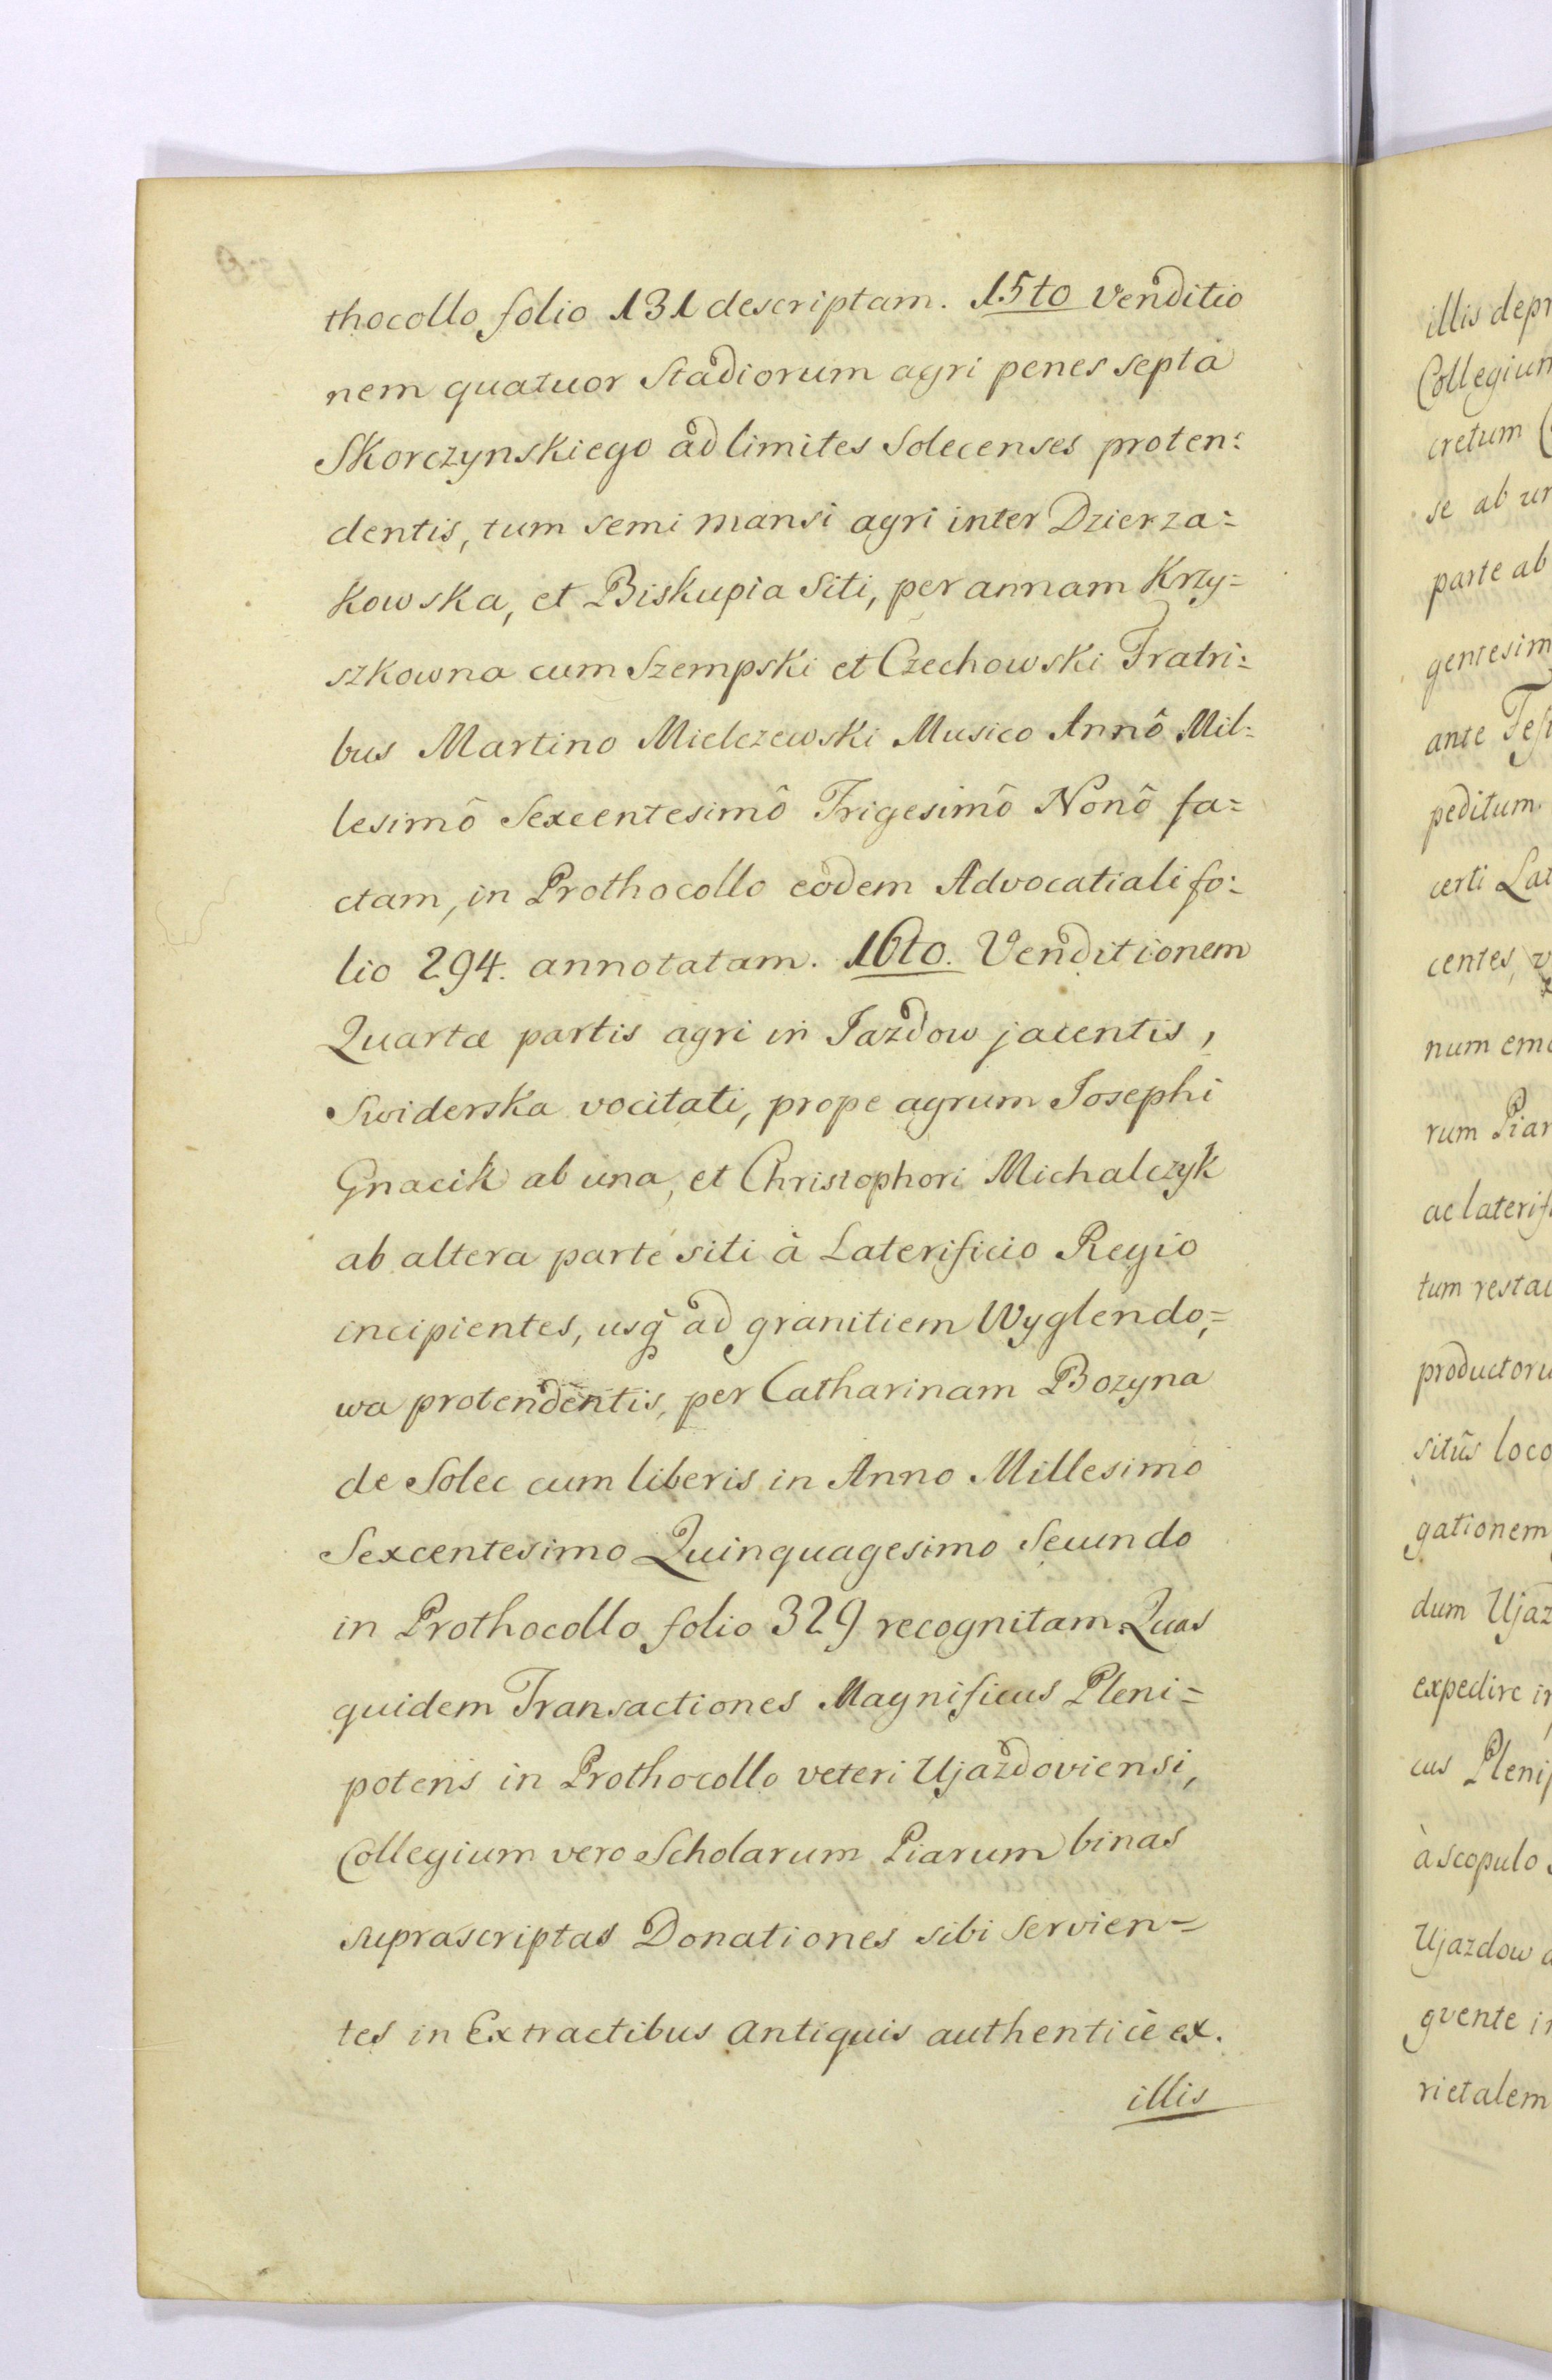 thocollo folio 131 descriptam. 15to Venditio
nem quatuor Stadiorum agri penes septa
Skorczynskiego ad limites Solecenses proten:
dentis, tum semi mansi agri inter Dzierza=
kowska, et Biskupia siti, per annam Krzy=
szkowna cum Szempski et Czechowski Fratri:
bus Martino Mielczewski Musico Annô Mil:
lesimô Sexcentesimô Trigesimô Nonô fa=
ctam, in Prothocollo eodem Advocatiali fo:
lio 294. annotatam. 16to. Venditionem
Quartæ partis agri in Jazdow jacentis,
Swiderska vocitati, prope agrum Josephi
Gnacik ab una, et Christophori Michalczyk
ab altera parte siti à Laterificio Regio
incipientes, usq̃ ad granitiem Wyglendo,=
wa protendentis, per Catharinam Bozyna
de Solec cum liberis in Anno Millesimo
Sexcentesimo Quinquagesimo Secundo
in Prothocollo folio 329 recognitam. Quas
quidem Transactiones Magnificus Pleni=
potens in Prothocollo veteri Ujazdoviensi,
Collegium vero Scholarum Piarum binas
suprascriptas Donationes sibi servien=
tes in Extractibus antiquis authenticè ex.
illis
illis depr
Collegium
cretum
se ab un
parte ab
gentesim
ante Test
peditum
certi Lat
centes,
num em
rum Piar
ac laterifi
tum resta
productoru
sitûs loco
gationem
dum Ujaz
expedire in
cus Plenip
à scopulo
Ujazdow a
quente in
rietalem